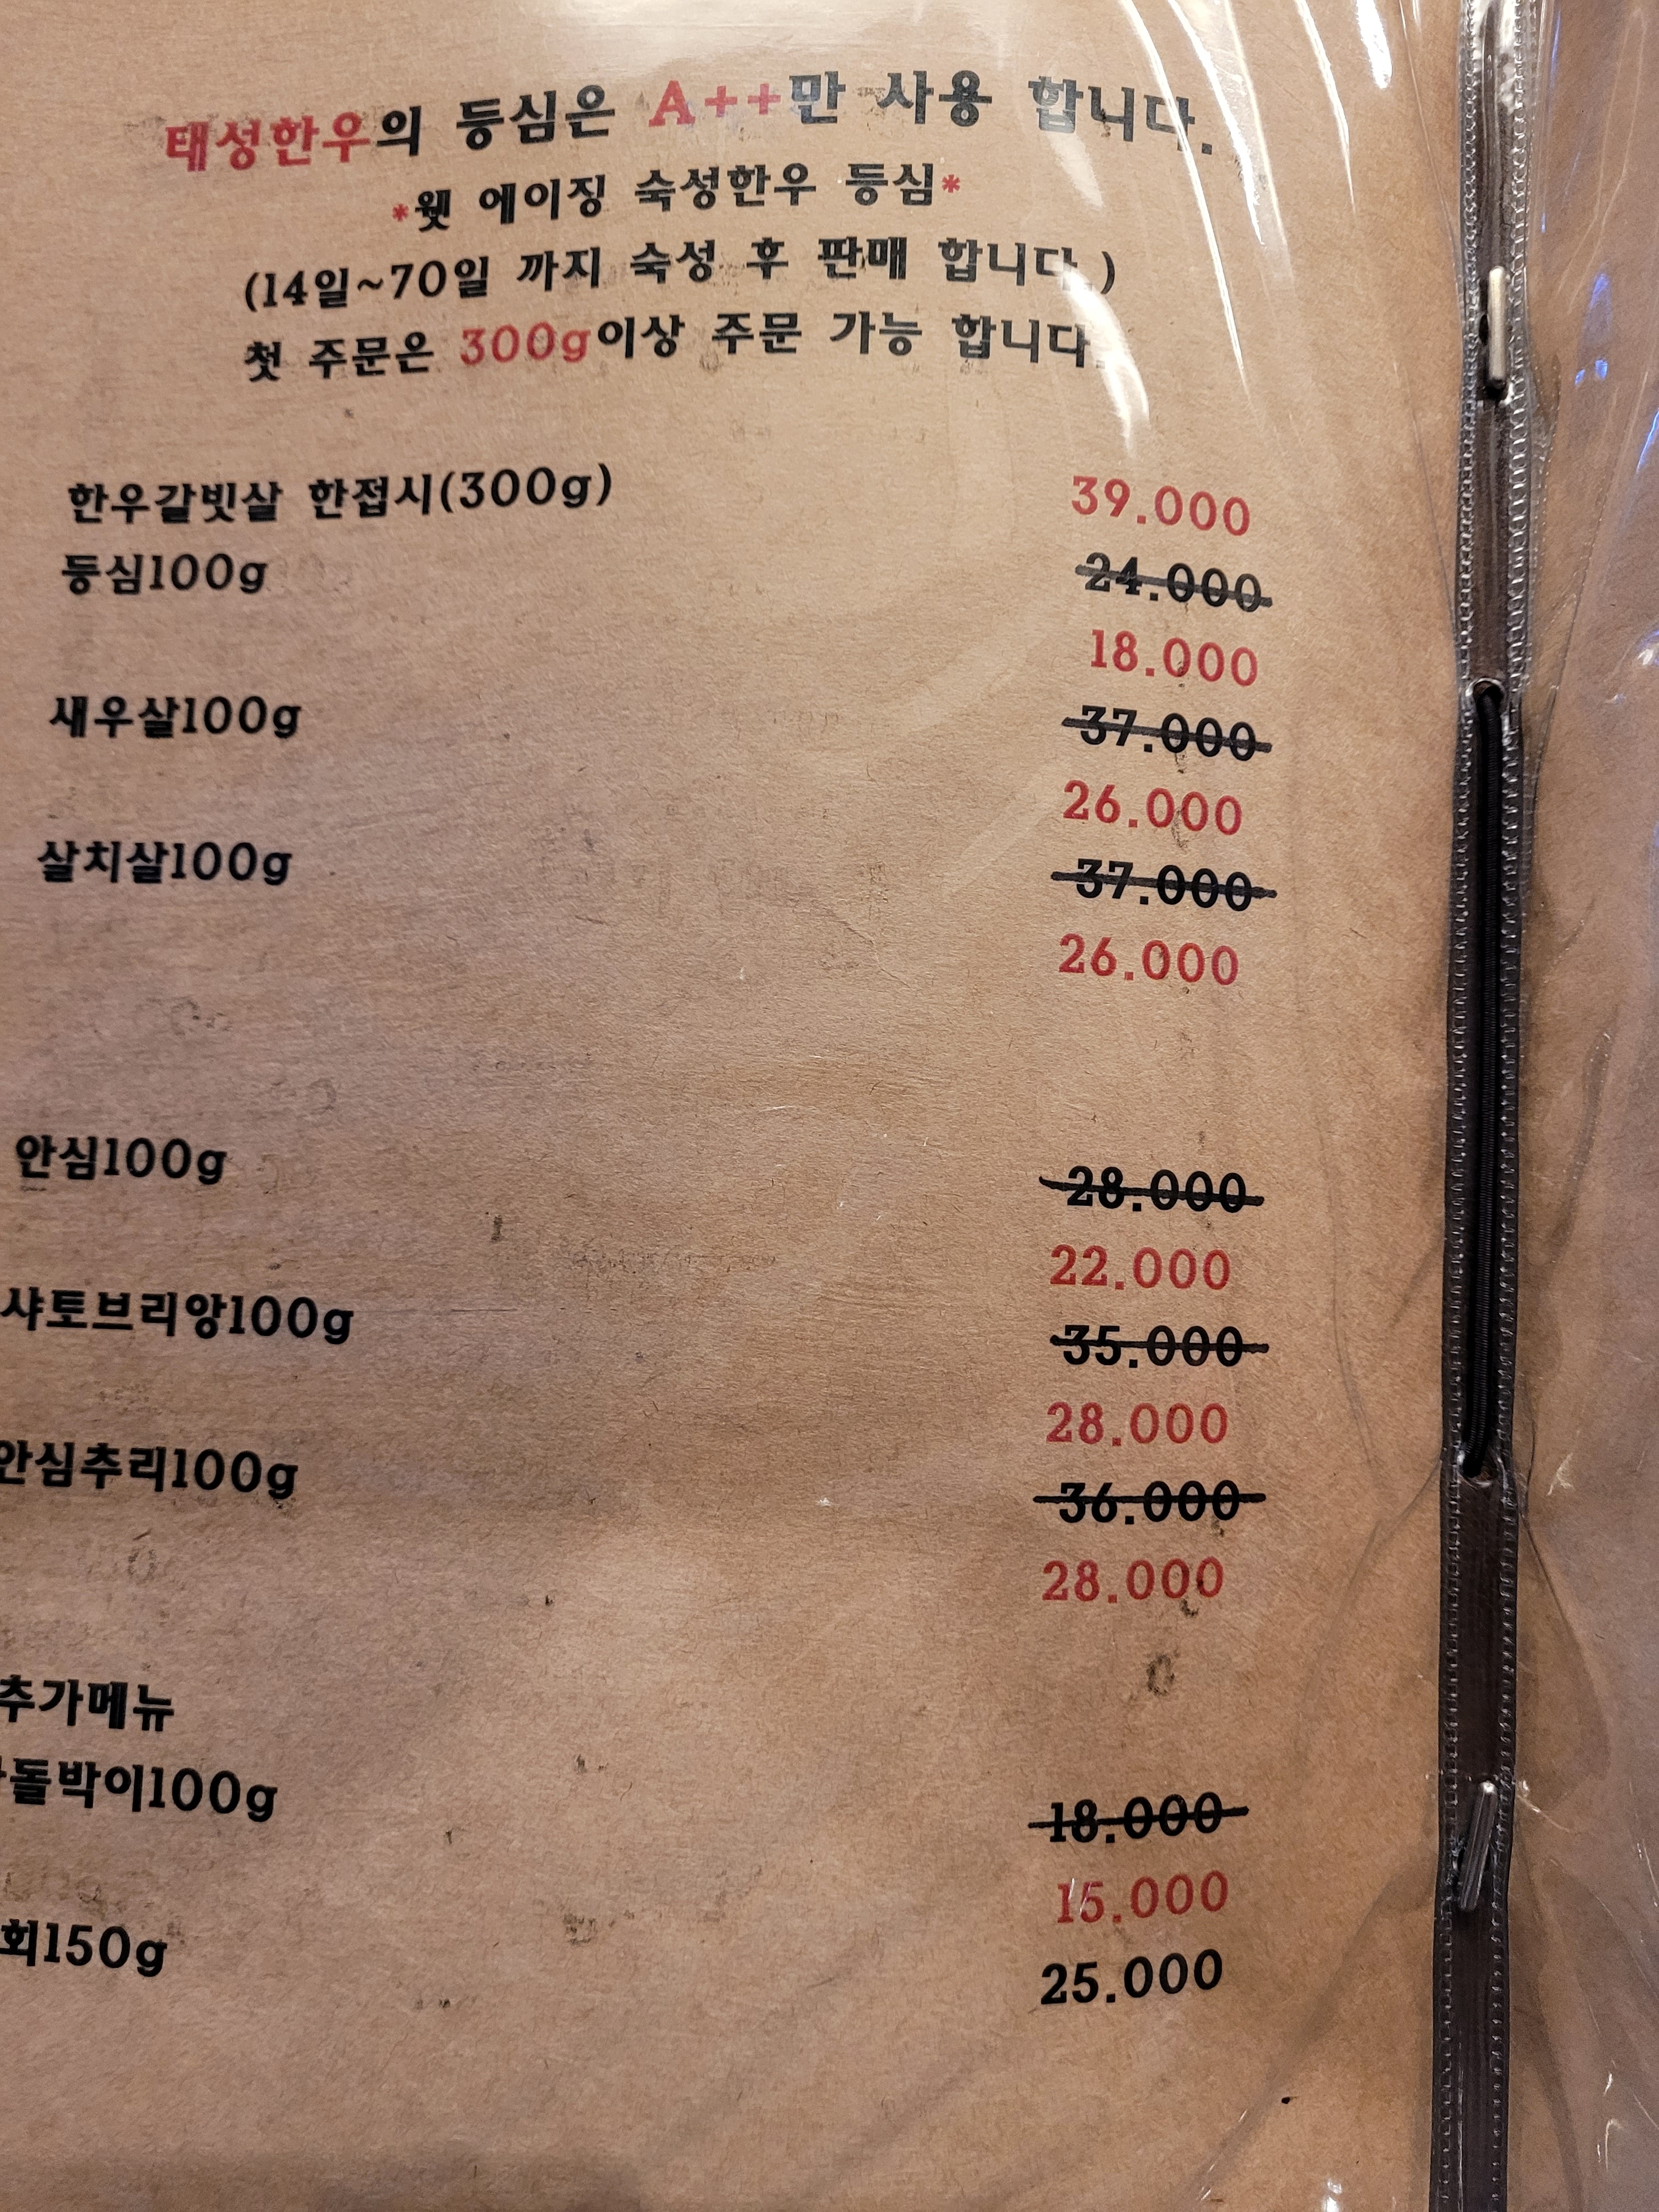 태성한우의 등심은 A++만 사용 합니다.
*웻 에이징 숙성한우 등심*
(14일~70일 까지 숙성 후 판매 합니다.)
첫 주문은 300g이상 주문 가능 합니다.
한우갈빗살 한접시(300g) 39.000
등심100g 24.000
18.000
새우살100g 37.000
26.000
살치살100g 37.000
26.000
안심100g 28.000
22.000
샤토브리앙100g 35.000
28.000
안심추리100g 36.000
28.000
추가메뉴
돌박이100g 18.000
15.000
회150g 25.000